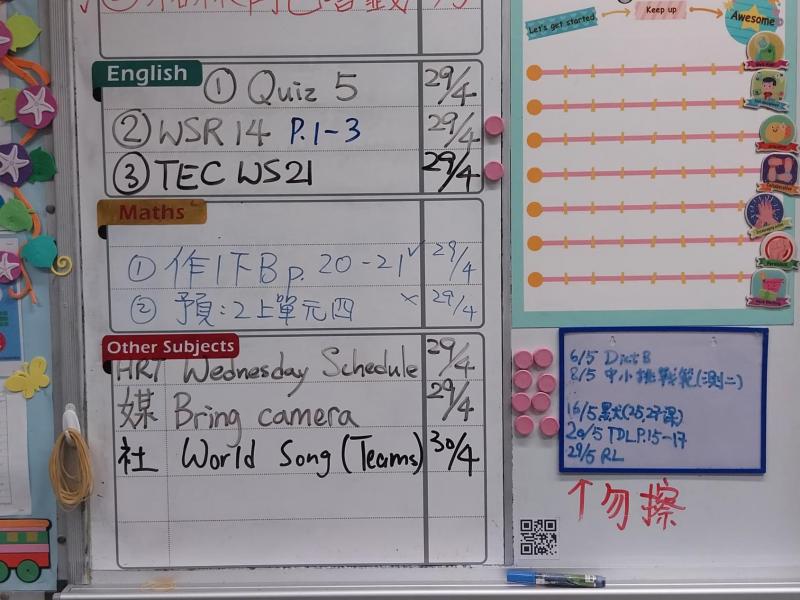 Let's get started
Keep up
Awesome
English
① Quiz 5 29/4
② WSR 14 P.1-3 29/4
③ TEC WS21 29/4
Maths
① 作1下B p. 20-21 ✓ 29/4
② 預:2上單元四 × 29/4
Other Subjects
HRT Wednesday Schedule 29/4
媒 Bring camera 29/4
社 World Song (Teams) 30/4
6/5 Dict 8
8/5 中小挑戰範(測二)
16/5 默(25,27課)
20/5 TDL P.15-17
29/5 RL
↑勿擦